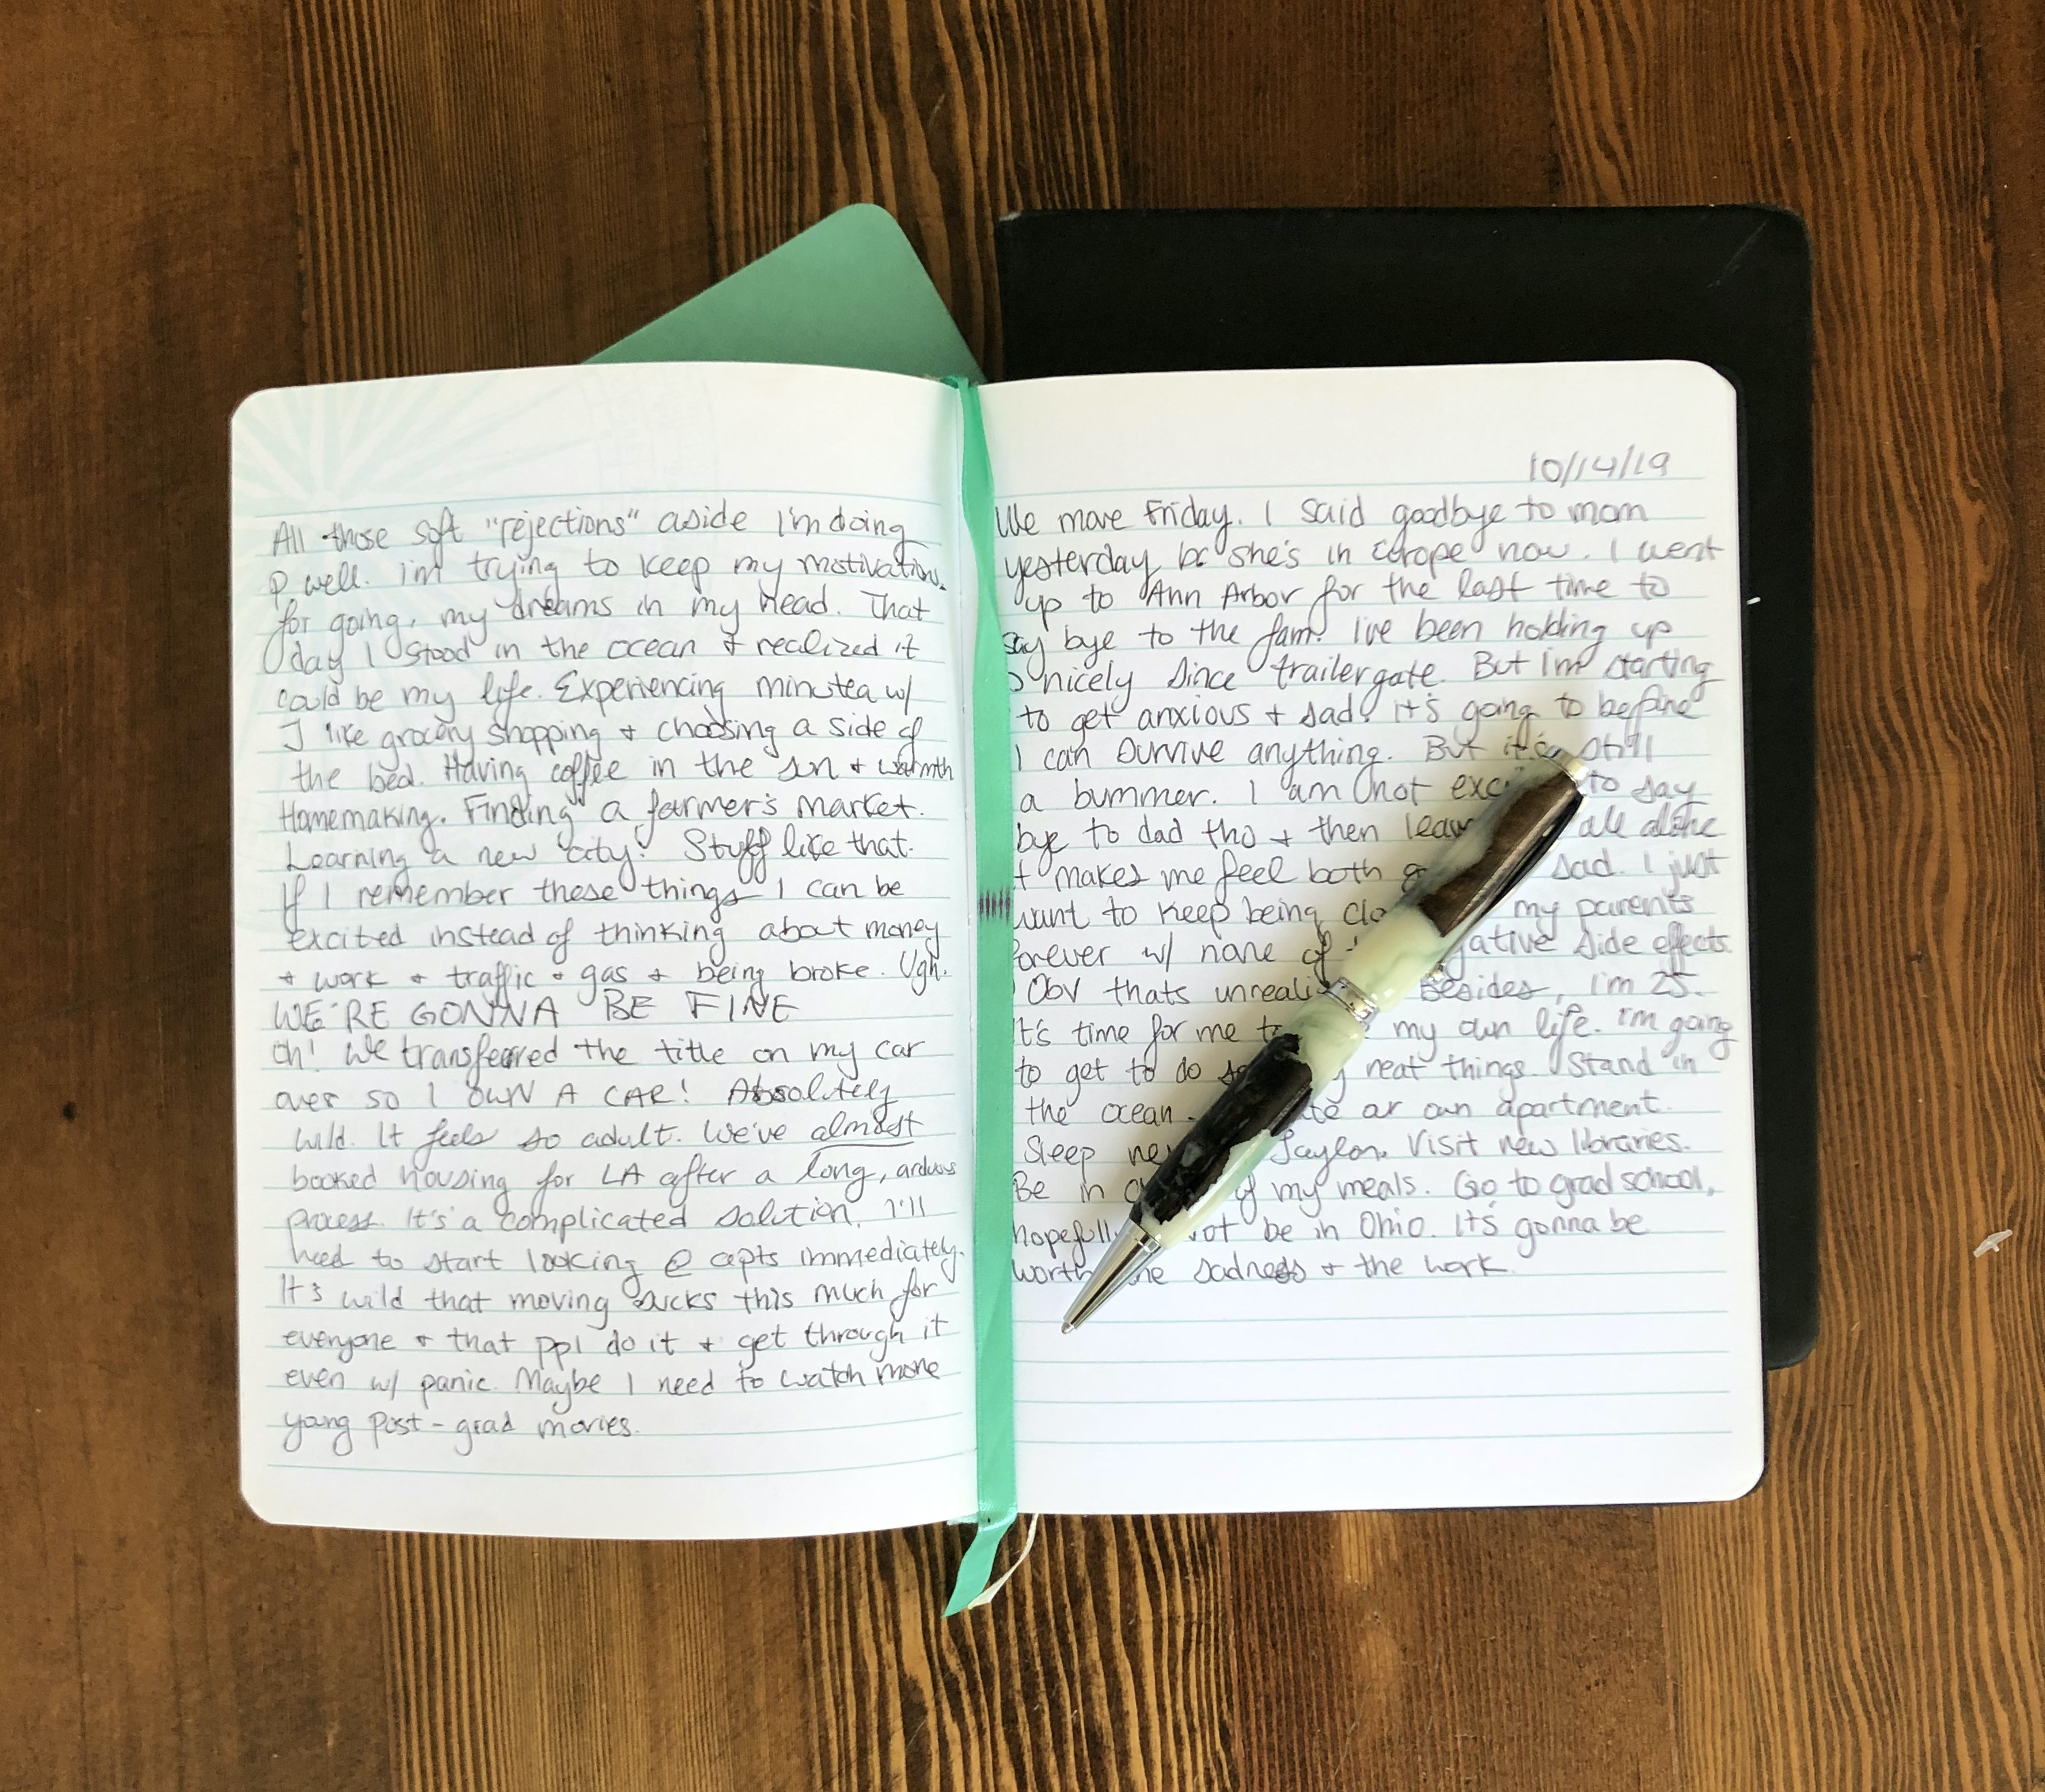 All those soft "rejections" aside I'm doing
p well. I'm trying to keep my motivations
for going, my dreams in my head. That
day I stood in the ocean & realized it
could be my life. Experiencing minutea w/
J like grocery shopping & choosing a side of
the bed. Having coffee in the sun & warmth
Homemaking. Finding a farmer's market.
Learning a new city! Stuff like that.
If I remember these things I can be
excited instead of thinking about money
& work & traffic & gas & being broke. Ugh.
WE'RE GONNA BE FINE
Oh! We transferred the title on my car
over so I OWN A CAR! Absolutely
wild. It feels so adult. We've almost
booked housing for LA after a long, arduous
process. It's a complicated solution. I'll
need to start looking @ apts immediately.
It's wild that moving sucks this much for
everyone & that ppl do it & get through it
even w/ panic. Maybe I need to watch more
young post-grad movies.
10/14/19
We move Friday. I said goodbye to mom
yesterday bc she's in europe now. I went
up to Ann Arbor for the last time to
say bye to the fam. I've been holding up
nicely since trailergate. But I'm starting
to get anxious & sad. it's going to be fine
I can survive anything. But it's still
a bummer. I am not to say
bye to dad tho & then all alone
it makes me feel both sad. I just
want to keep being my parents
forever w/ none of side effects.
Obv thats Besides, I'm 25.
It's time for me my own life. I'm going
to get to do neat things. Stand in
the ocean. our own apartment.
Sleep Jaylon. Visit new libraries.
Be in of my meals. Go to grad school,
hopefully not be in Ohio. It's gonna be
worth the sadness & the work.